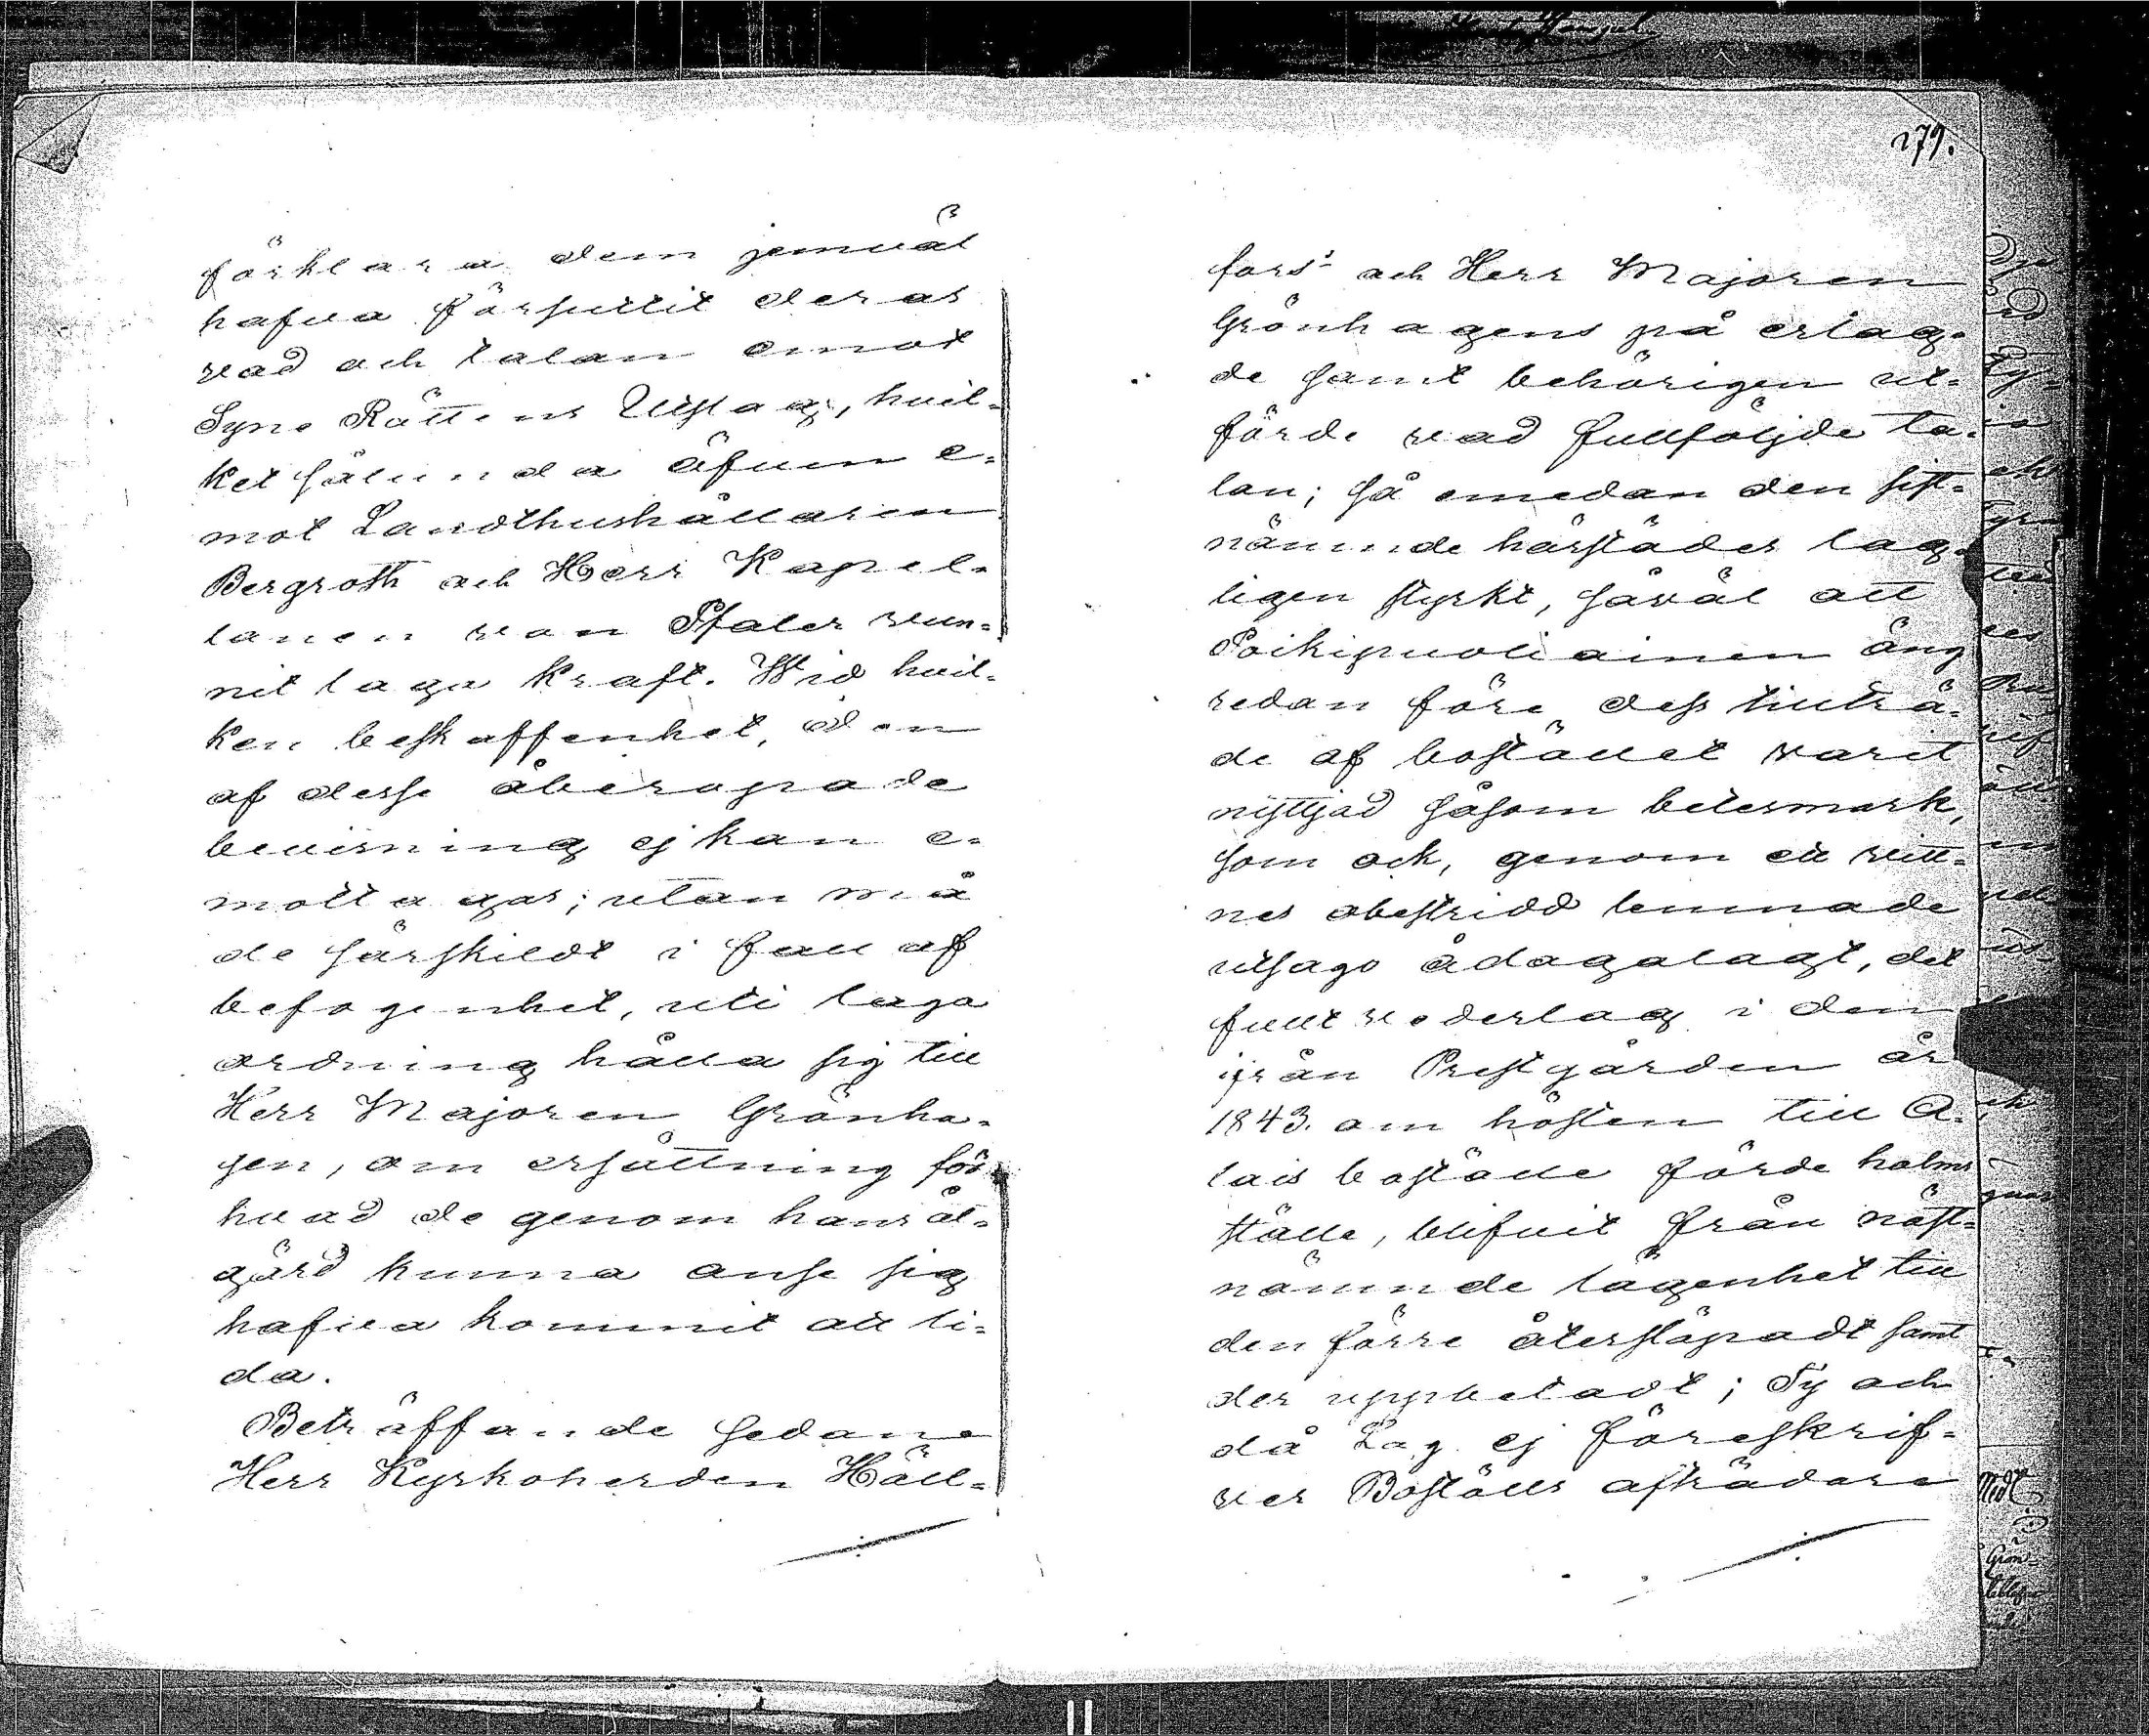 279.
förklara dem jemväl
hafva försuttit deras
vad och talan emot
Syne Rättens Utslag, hvil=
ket sålunda äfven e=
mot Landthushållaren
Bergroth och Herr Kapel=
lanen von Pfaler vun=
nit laga kraft. Wid hvil=
ken beskaffenhet, den
af desse åberopade
bevisning ej kan e=
mottagas; utan må
de särskildt i fall af
befogenhet, uti laga
ordning hålla sig till
Herr Majoren Grönha=
gen, om ersättning för
hvad de genom hans åt=
gärd kunna anse sig
hafva kommit att li=
da.
Beträffande sedan
Herr Kyrkoherden Häll=
fors' och Herr Majoren
Grönhagens på erlag=
de samt behörigen ut=
förde vad fullföljde ta=
lan; så emedan den sist=
nämnde härstädes lag=
ligen styrkt, såväl att
Poikipuoliainen äng
redan före dess tillträ=
de af bostället varit
nyttjad såsom betesmark,
som ock, genom ett vitt=
nes obestridd lemnade
utsago ådagalagt, det
fullt vederlag i den
ifrån Prestgården år
1843. om hösten till A=
lais boställe förde halms
ställe, blifvit från näst=
nämnde lägenhet till
den förre återsläpadt samt
der uppbetadt; Ty och
då Lag ej föreskrif=
ver Boställs afträdare